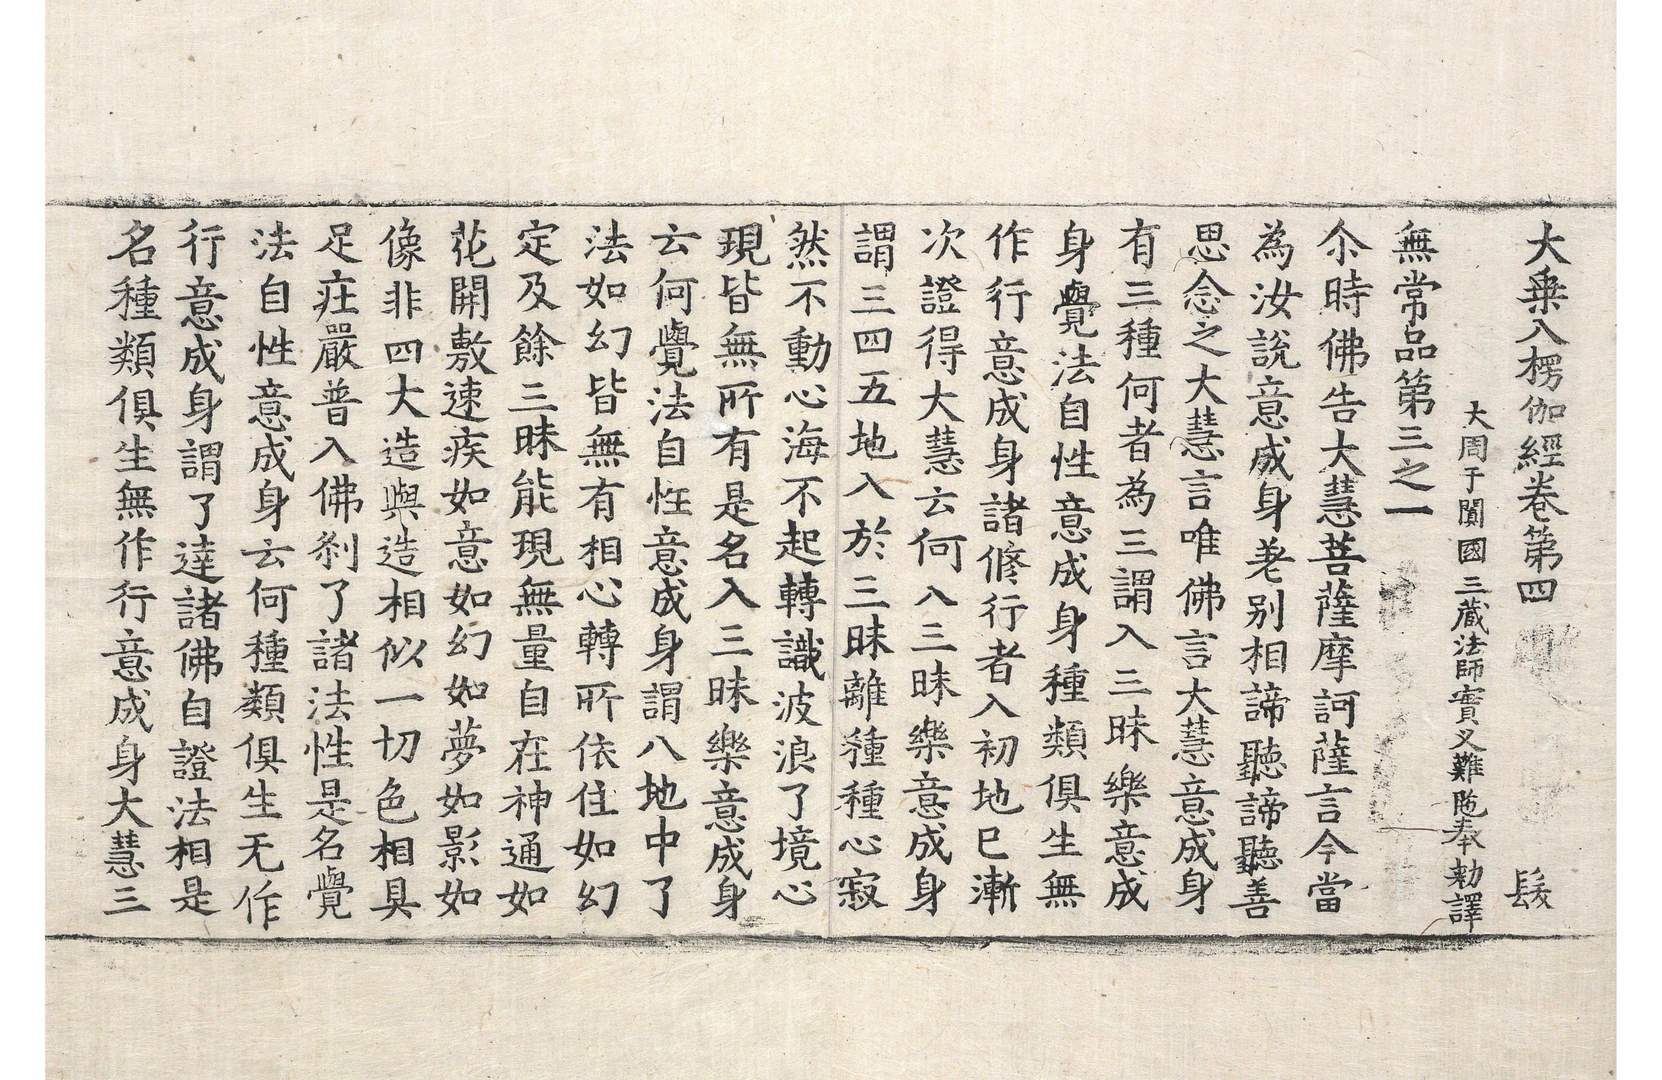 大乗入楞伽經卷第四　髮
大周于闐國三藏法師實叉難陁奉勅譯
無常品第三之一
尒時佛告大慧菩薩摩訶薩言今當
為汝說意成身差别相諦聽諦聽善
思念之大慧言唯佛言大慧意成身
有三種何者為三謂入三昧樂意成
身覺法自性意成身種類俱生無
作行意成身諸修行者入初地已漸
次證得大慧云何入三昧樂意成身
謂三四五地入於三昧離種種心寂
然不動心海不起轉識波浪了境心
現皆無所有是名入三昧樂意成身
云何覺法自性意成身謂八地中了
法如幻皆無有相心轉所依住如幻
定及餘三昧能現無量自在神通如
花開敷速疾如意如幻如夢如影如
像非四大造與造相似一切色相具
足庄嚴普入佛刹了諸法性是名覺
法自性意成身云何種類俱生无作
行意成身謂了達諸佛自證法相是
名種類俱生無作行意成身大慧三